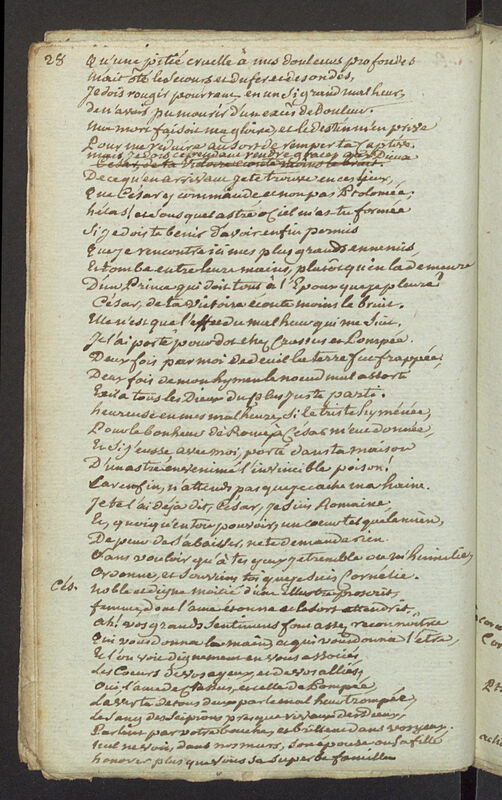 28 Qu'une pitié cruelle à mes douleurs profondes
Mait ôté le secours et du fer et des ondes,
Je dois rougir pourtant en un si grand malheur,
de n'avoir pu mourir d'un excès de douleur.
Ma mort faisoit ma gloire, et le destin m'en prive
Pour me réduire au sort de remper ta Captive.
mais je dois cependant rendre graces aux Dieux
De ce qu'en arrivant je te trouve en ces lieux,
Que César y commande et non pas Ptolomée;
hélas! et sous quel astre o Ciel m'as tu formée
Si je dois te benir d'avoir enfin permis
Que je rencontre ici mes plus grands ennemis
Et tombe entre leurs mains, plutôt qu'en la demeure
D'un Prince qui doit tout à l'Epoux que je pleure
César, de ta Victoire écoute moins le bruit.
Elle n'est que l'effet du malheur qui me suit,
Je l'ai porté pour dot chez Crassus et Pompée.
Deux fois par moi de deuil la terre fut frappée;
Deux fois de mon hymen le noeud mal assorti
Exila tous les Dieux du plus juste parti.
heureuse en mes malheurs, si le triste hyménée,
Pour le bonheur de Rome, à César m'eut donnée,
Et si j'eusse avec moi, porté dans ta maison
D'un astre envenimé l'invincible poison!
Car enfin, n'attends pas que je cache ma haine.
Je te l'ai déja dit, César, je suis Romaine,
Et, quoiqu'en ton pouvoir, un coeur tel que le mien,
De peur de s'abaisser, ne te demande rien.
Sans vouloir qu'à tes yeux je tremble ou m'humilie,
Ordonne, et souviens toi que je suis Cornélie.
Cés. noble et digne moitié d'un illustre proscrit,
femme, dont l'ame étonne et le sort attendrit.
Ah! vos grands sentimens font assez reconnoître
Qui vous donna la main, à qui vous donna l'être,
Et l'on voit dignement en vous associés
Les Coeurs de vos ayeux, et de vos alliés,
Oui, l'ame de Crassus, et celle de Pompée,
La vertu de tous deux par le malheur trompée,
Le sang des Scipions presque rivaux des Dieux,
Parlent par votre bouche, et brillent dans vos yeux.
et ne voit, dans nos murs, son epouse ou sa fille
honorer plus que vous sa superbe famille